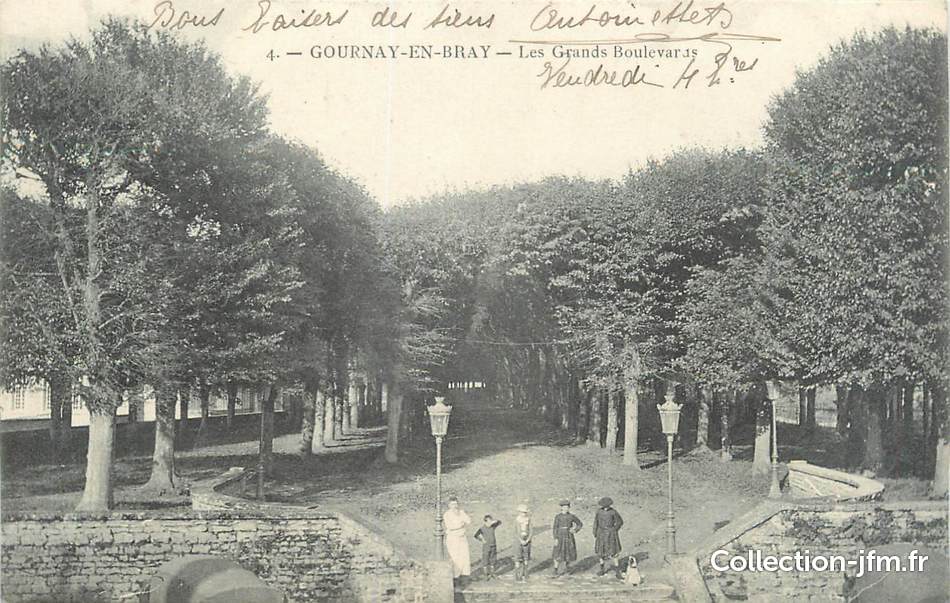 Bons baisers des siens Antoinette
4. — GOURNAY-EN-BRAY — Les Grands Boulevards
Vendredi 4 hres
Collection-jfm.fr
Collection-jfm.fr